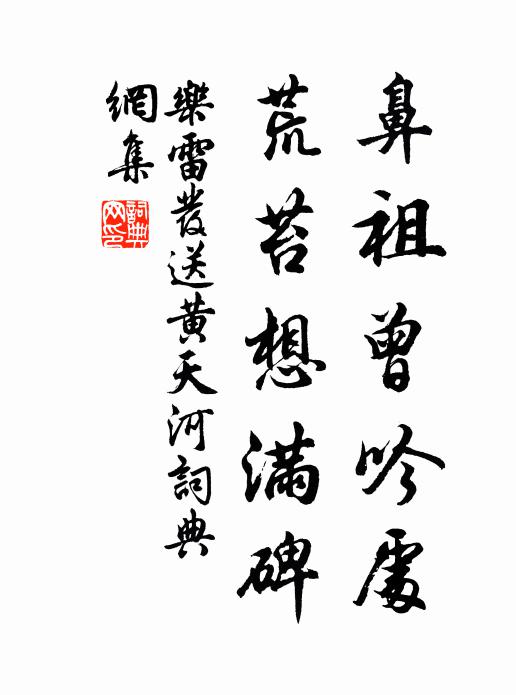 鼻祖曾吟處
荒苔想滿碑
樂雷發送黄天河詞典
網集
詞典
网印